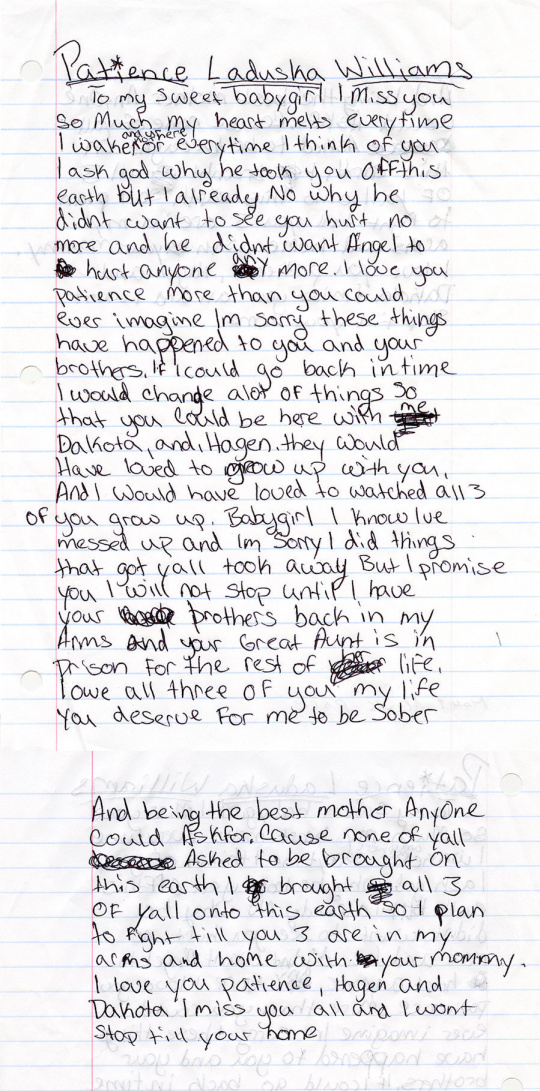 Pat*ence Laduska Williams
To my sweet babygirl I Miss you
So Much my heart melts everytime
I wake anywhere or everytime I think of you
I ask god why he took you OFF this
earth but I already No why he
didnt want to see you hurt no
more and he didnt want Angel to
hurt anyone any more. I love you
patience more than you could
ever imagine Im sorry these things
have happened to you and your
brothers. If I could go back in time
I would change alot of things so
that you could be here with me
Dakota, and, Hagen. they would
Have loved to grow up with you,
And I would have loved to watched all 3
OF you grow up. Babygirl I know Ive
messed up and Im Sorry I did things
that got yall took away But I promise
you I will not stop until I have
your brothers back in my
Arms and your Great Aunt is in
prison for the rest of her life.
I owe all three OF you my life
You deserve For me to be Sober
And being the best mother AnyOne
Could Ask for. Cause none of yall
Asked to be brought on
this earth I brought all 3
OF yall onto this earth so I plan
to fight till you 3 are in my
arms and home with your mommy.
I love you patience, Hagen and
Dakota I miss you all and I wont
Stop till your home